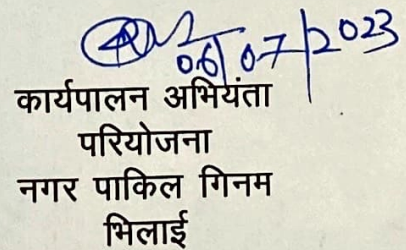 06/07/2023
कार्यपालन अभियंता
परियोजना
नगर पाकिल गिनम
भिलाई